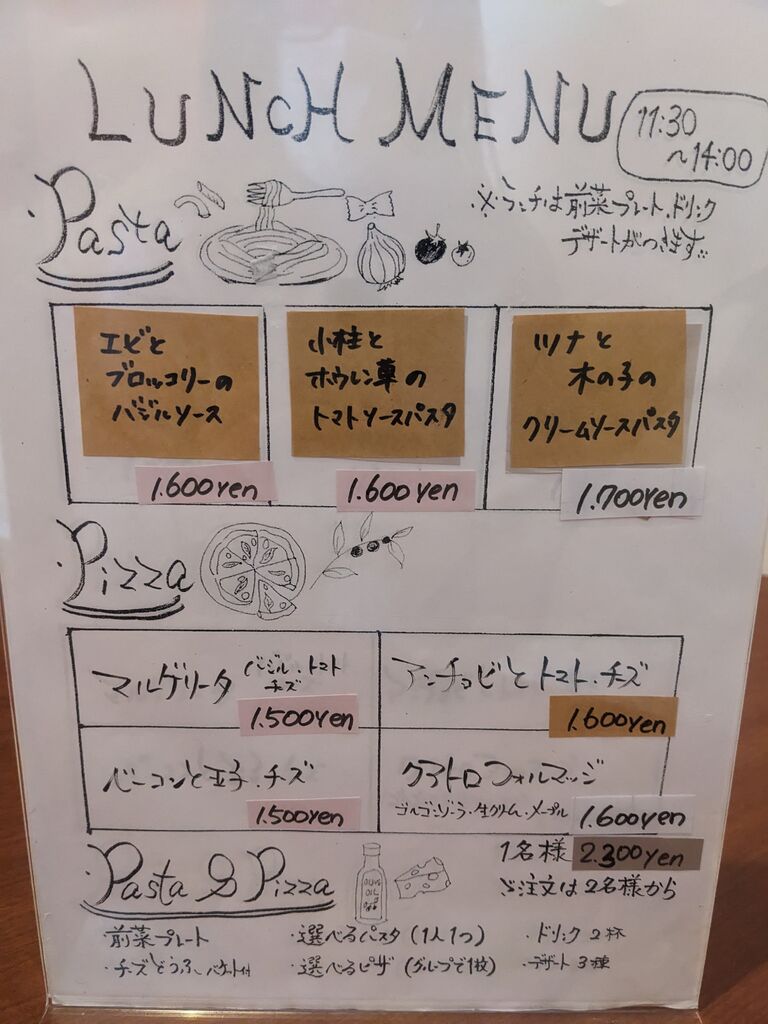 LUNCH MENU
11:30
～14:00
・Pasta
※ランチは前菜プレート、ドリンク
デザートがつきます。
エビと
ブロッコリーの
バジルソース
1.600yen
小柱と
ホウレン草の
トマトソースパスタ
1.600yen
ツナと
木の子の
クリームソースパスタ
1.700yen
・Pizza
マルゲリータ バジル・トマト
チーズ
1.500yen
アンチョビとトマト・チーズ
1.600yen
ベーコンと玉子・チーズ
1.500yen
クアトロフォルマッジ
ゴルゴンゾーラ・生クリーム・メープル
1.600yen
・Pasta & Pizza
OLIVE
OIL
1名様 2.300yen
ご注文は2名様から
・前菜プレート
・選べるパスタ(1人1つ)
・ドリンク2杯
・チーズどうふ バケット付
・選べるピザ(グループで1枚)
・デザート3種